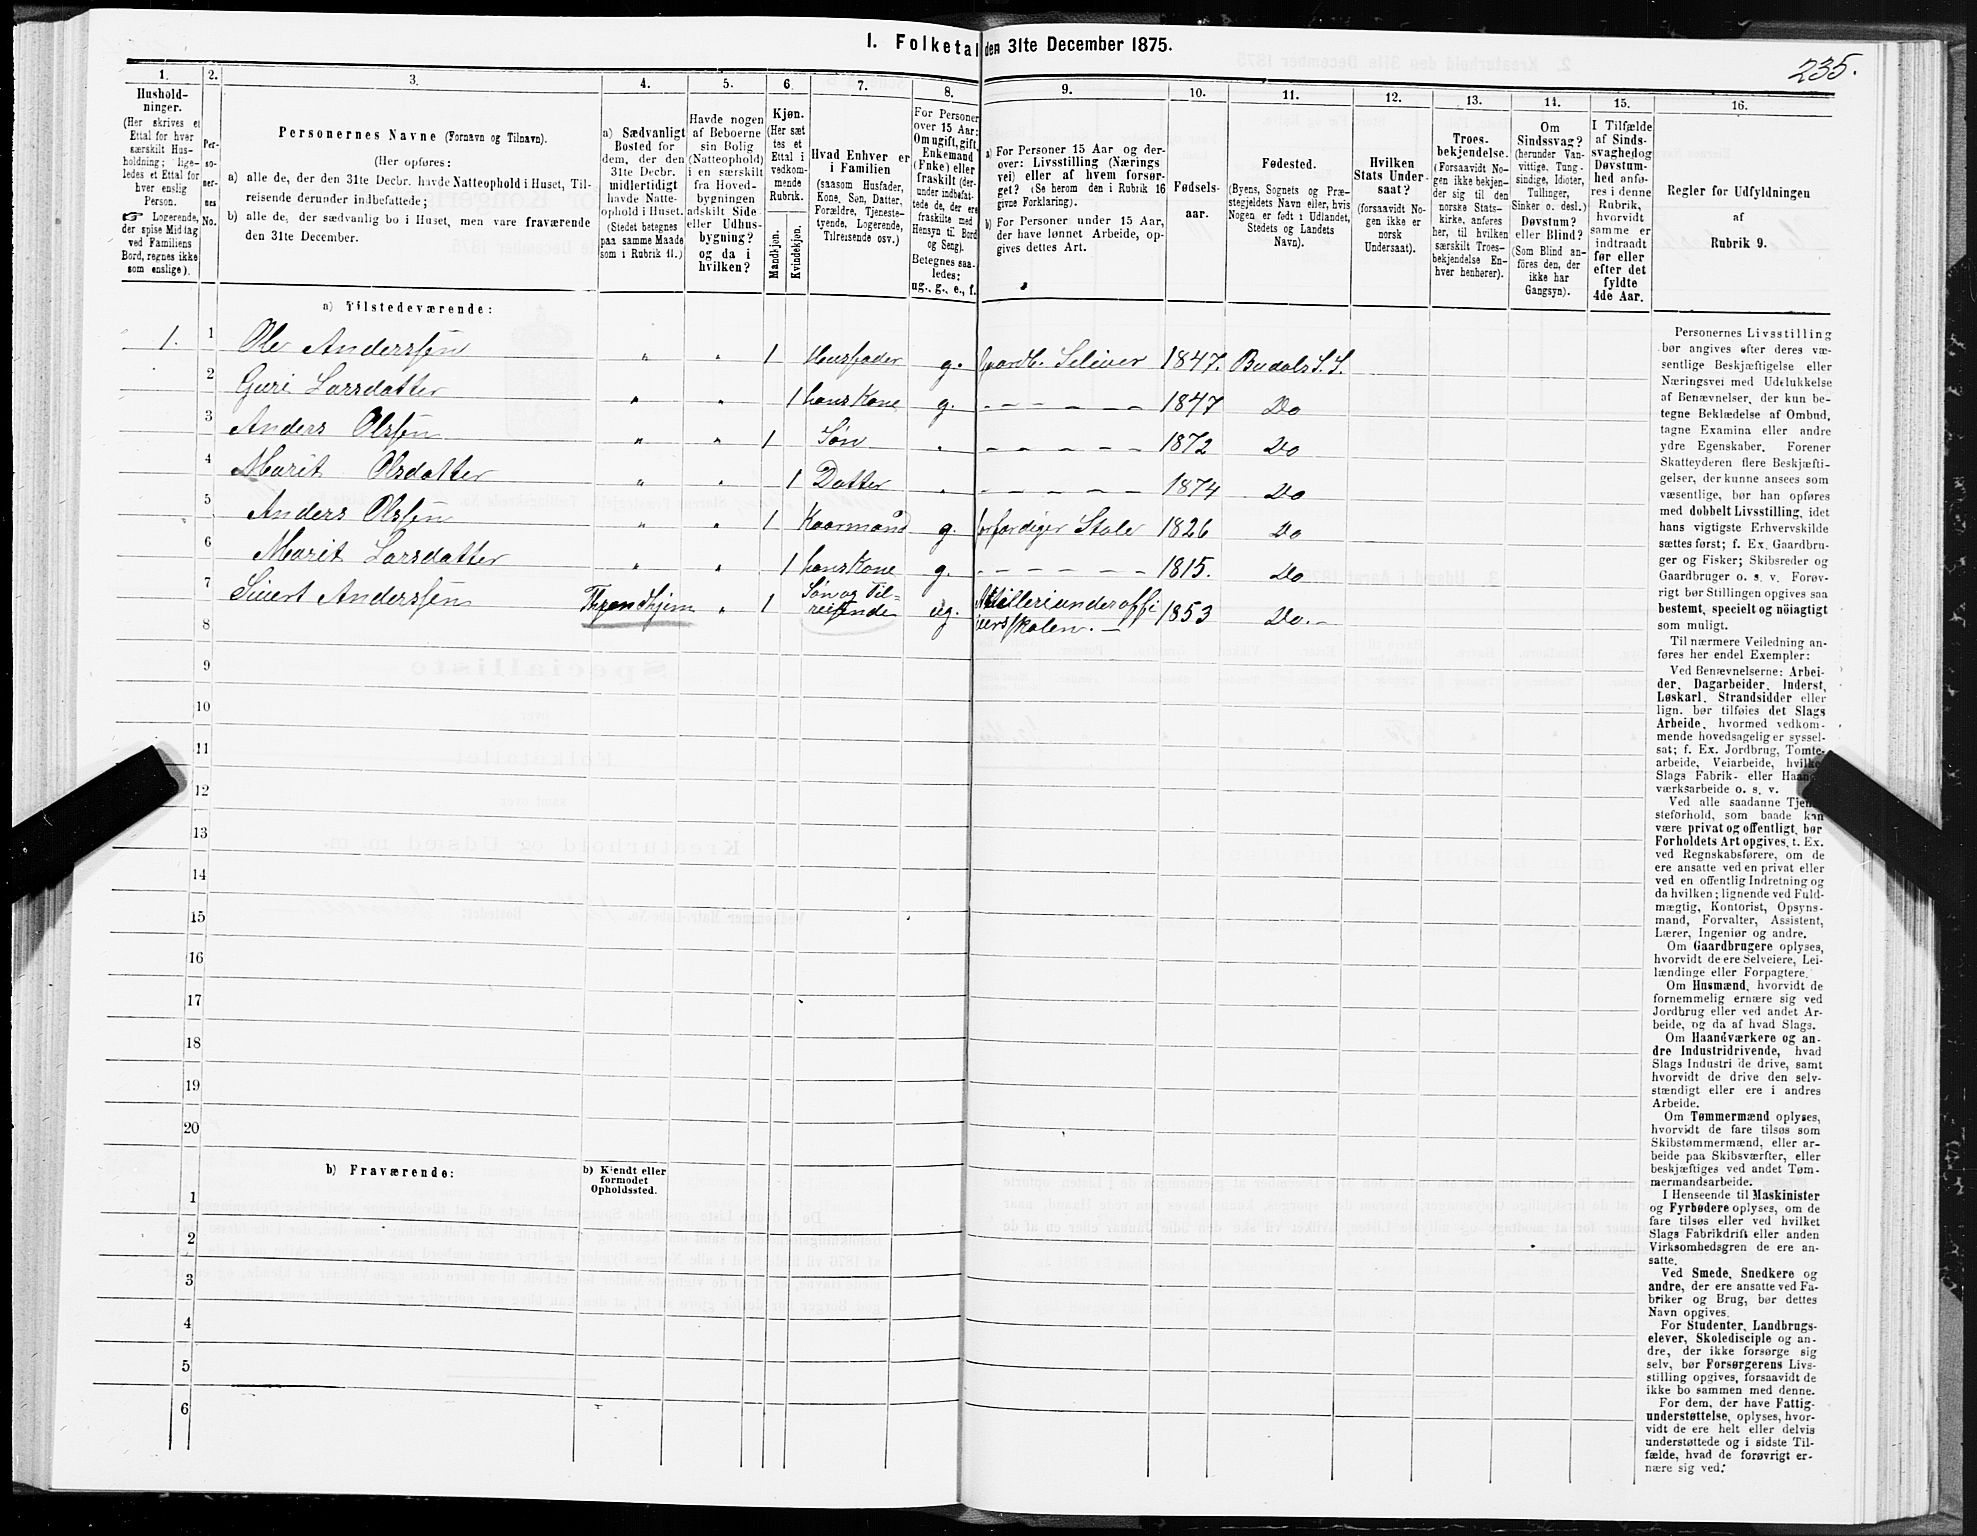 I. Folketal den 31te December 1875.
235.
1.
Hushold-
ninger.
(Her skrives et
Ettal for hver
særskilt Hus-
holdning; lige-
ledes et Ettal for
hver enslig
Person.
☞ Logerende,
der spise Middag
ved Familiens
Bord, regnes ikke
som enslige).
2.
Per-
so-
ner-
nes
No.
3.
Personernes Navne (Fornavn og Tilnavn).
(Her opføres:
a) alle de, der den 31te Decbr. havde Natteophold i Huset, Til-
reisende derunder indbefattede;
b) alle de, der sædvanlig bo i Huset, men vare fraværende
den 31te December.
4.
a) Sædvanligt
Bosted for
dem, der den
31te Decbr.
midlertidigt
havde Natte-
ophold i Huset.
(Stedet betegnes
paa samme Maade
som i Rubrik 11.)
5.
Havde nogen
af Beboerne
sin Bolig
(Natteophold)
i en særskilt
fra Hoved-
bygningen
adskilt Side-
eller Udhus-
bygning?
og da i
hvilken?
6.
Kjøn.
(Her sæt-
tes et
Ettal i
vedkom-
mende
Rubrik.
Mandkjøn.
Kvindekjøn.
7.
Hvad Enhver er
i Familien
(saasom Husfader,
Kone, Søn, Datter,
Forældre, Tjeneste-
tyende, Logerende,
Tilreisende osv.)
8.
For Personer
over 15 Aar:
Om ugift, gift,
Enkemand
(Enke) eller
fraskilt (der-
under indbefat-
tede de, der ere
fraskilte med
Hensyn til Bord
og Seng).
Betegnes saa-
ledes:
ug., g., e., f.
9.
a) For Personer 15 Aar og der-
over: Livsstilling (Nærings-
vei) eller af hvem forsør-
get? (Se herom den i Rubrik 16
givne Forklaring).
b) For Personer under 15 Aar,
der have lønnet Arbeide, op-
gives dettes Art.
10.
Fødsels-
aar.
11.
Fødested.
(Byens, Sognets og Præ-
stegjeldets Navn eller, hvis
Nogen er født i Udlandet,
Stedets og Landets
Navn).
12.
Hvilken
Stats Under-
saat?
(forsaavidt No-
gen ikke er
norsk
Undersaat).
13.
Troes-
bekjendelse.
(Forsaavidt No-
gen ikke bekjen-
der sig til den
norske Stats-
kirke, anføres
her, til hvilken
særskilt Troes-
bekjendelse En-
hver henhører).
14.
Om
Sindssvag?
(herunder Van-
vittige, Tung-
sindige, Idioter,
Tullinger,
Sinker o. desl.)
Døvstum?
eller Blind?
(Som Blind an-
føres den, der
ikke har
Gangsyn).
15.
I Tilfælde
af Sinds-
svaghed og
Døvstum-
hed anfø-
res i denne
Rubrik,
hvorvidt
samme er
indtraadt
før eller
efter det
fyldte
4de Aar.
16.
Regler for Udfyldningen
af
Rubrik 9.
a) Tilstedeværende:
1. 1 Ole Anderssen " " 1 Husfader g. Gaardb. Seleier 1847. Budals S. S.
2 Guri Larsdatter " " 1 hans Kone g. – – – – – 1847 Do
3 Anders Olssen " " 1 Søn " – – – – – 1872 Do
4 Marit Olsdatter " " 1 Datter " – – – – – 1874 Do
5 Anders Olssen " " 1 Kaarmand g. forfærdiger Stole 1826 Do
6 Marit Larsdatter " " 1 hans Kone g. – – – – – – 1815. Do
7 Siuert Anderssen Throndhjem " 1 Søn og Til-
reisende ug. 1853 Do. –
8
9
10
11
12
13
14
15
16
17
18
19
20
b) Fraværende:
b) Kjendt eller
formodet
Opholdssted.
1
2
3
4
5
6
Personernes Livsstilling
bør angives efter deres væ-
sentlige Beskjæftigelse eller
Næringsvei med Udelukkelse
af Benævnelser, der kun be-
tegne Beklædelse af Ombud,
tagne Examina eller andre
ydre Egenskaber. Forener
Skatteyderen flere Beskjæfti-
gelser, der kunne ansees som
væsentlige, bør han opføres
med dobbelt Livsstilling, idet
hans vigtigste Erhvervskilde
sættes først; f. Ex. Gaardbru-
ger og Fisker; Skibsreder og
Gaardbruger o. s. v. Forøv-
rigt bør Stillingen opgives saa
bestemt, specielt og nøiagtigt
som muligt.
Til nærmere Veiledning an-
føres her endel Exempler:
Ved Benævnelserne: Arbei-
der, Dagarbeider, Inderst,
Løskarl, Strandsidder eller
lign. bør tilføies det Slags
Arbeide, hvormed vedkom-
mende hovedsagelig er syssel-
sat; f. Ex. Jordbrug, Tomte-
arbeide, Veiarbeide, hvilket
Slags Fabrik- eller Haand-
værksarbeide o. s. v.
Ved alle saadanne Tjene-
steforhold, som baade kan
være privat og offentligt, bør
Forholdets Art opgives, t. Ex.
ved Regnskabsførere, om de
ere ansatte ved en privat eller
ved en offentlig Indretning og
da hvilken; lignende ved Fuld-
mægtig, Kontorist, Opsyns-
mand, Forvalter, Assistent,
Lærer, Ingeniør og andre.
Om Gaardbrugere oplyses,
hvorvidt de ere Selveiere, Lei-
lændinge eller Forpagtere.
Om Husmænd, hvorvidt de
fornemmelig ernære sig ved
Jordbrug eller ved andet Ar-
beide, og da af hvad Slags.
Om Haandværkere og an-
dre Industridrivende, hvad
Slags Industri de drive, samt
hvorvidt de drive den selv-
stændigt eller ere i andres
Arbeide.
Om Tømmermænd oplyses,
hvorvidt de fare tilsøs som
Skibstømmermænd, eller ar-
beide paa Skibsværfter, eller
beskjæftiges ved andet Tøm-
mermandsarbeide.
I Henseende til Maskinister
og Fyrbødere oplyses, om de
fare tilsøs eller ved hvilket
Slags Fabrikdrift eller anden
Virksomhedsgren de ere an-
satte.
Ved Smede, Snedkere og
andre, der ere ansatte ved Fa-
briker og Brug, bør dettes
Navn opgives.
For Studenter, Landbrugs-
elever, Skoledisciple og an-
dre, der ikke forsørge sig
selv, bør Forsørgerens Livs-
stilling opgives, forsaavidt de
ikke bo sammen med denne.
For dem, der have Fattig-
understøttelse, oplyses, hvor-
vidt de ere helt eller delvis
understøttede og i sidste Til-
fælde, hvad de forøvrigt er-
nære sig ved.